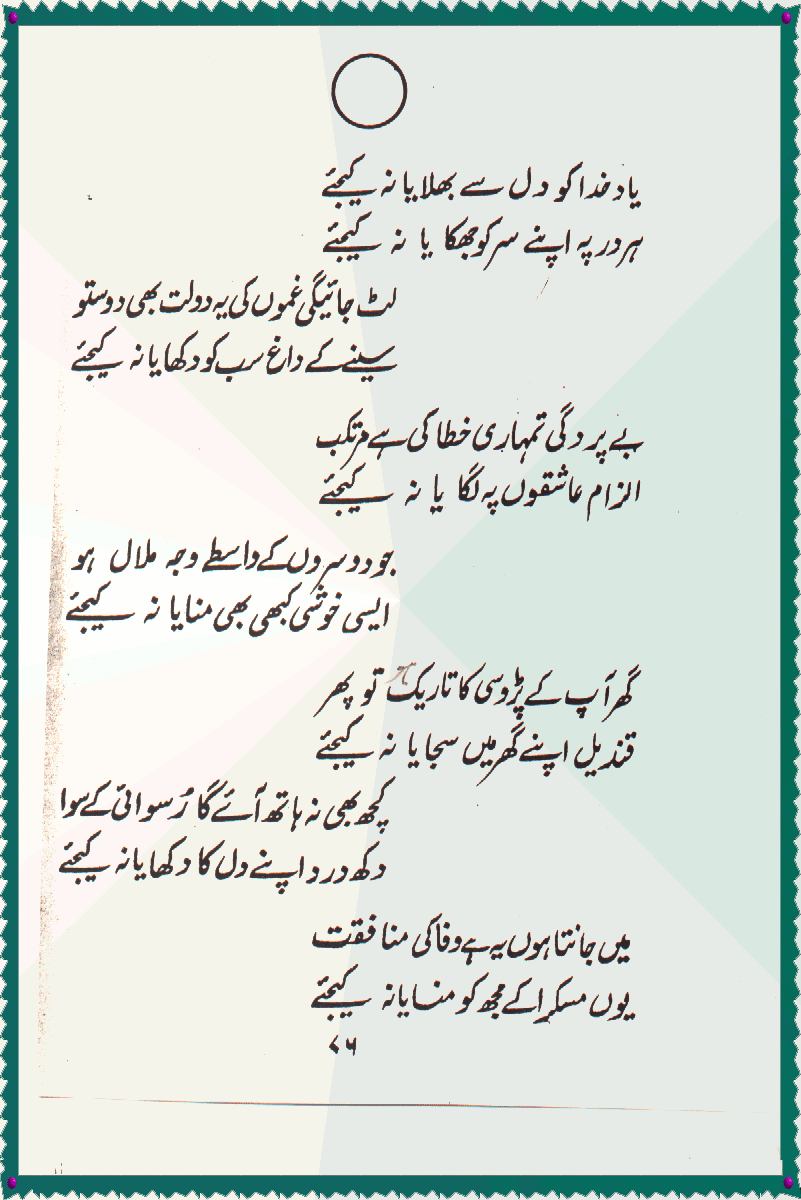 یادِ خدا کو دل سے بھلایا نہ کیجئے
ہر در پہ اپنے سر کو جھکا یا نہ کیجئے
لٹ جائیگی غموں کی یہ دولت بھی دوستو
سینے کے داغ سب کو دکھایا نہ کیجئے
بے پردگی تمہاری خطا کی ہے مرتکب
الزام عاشقوں پہ لگا یا نہ کیجئے
جو دوسروں کے واسطے وجہ ملال ہو
ایسی خوشی کبھی بھی منایا نہ کیجئے
گھر آپ کے پڑوسی کا تاریک تو پھر
قندیل اپنے گھر میں سجایا نہ کیجئے
کچھ بھی نہ ہاتھ آئے گا رُسوائی کے سوا
دکھ درد اپنے دل کا دکھایا نہ کیجئے
میں جانتا ہوں یہ ہے وفا کی منافقت
یوں مسکرا کے مجھ کو منایا نہ کیجئے
۷۵